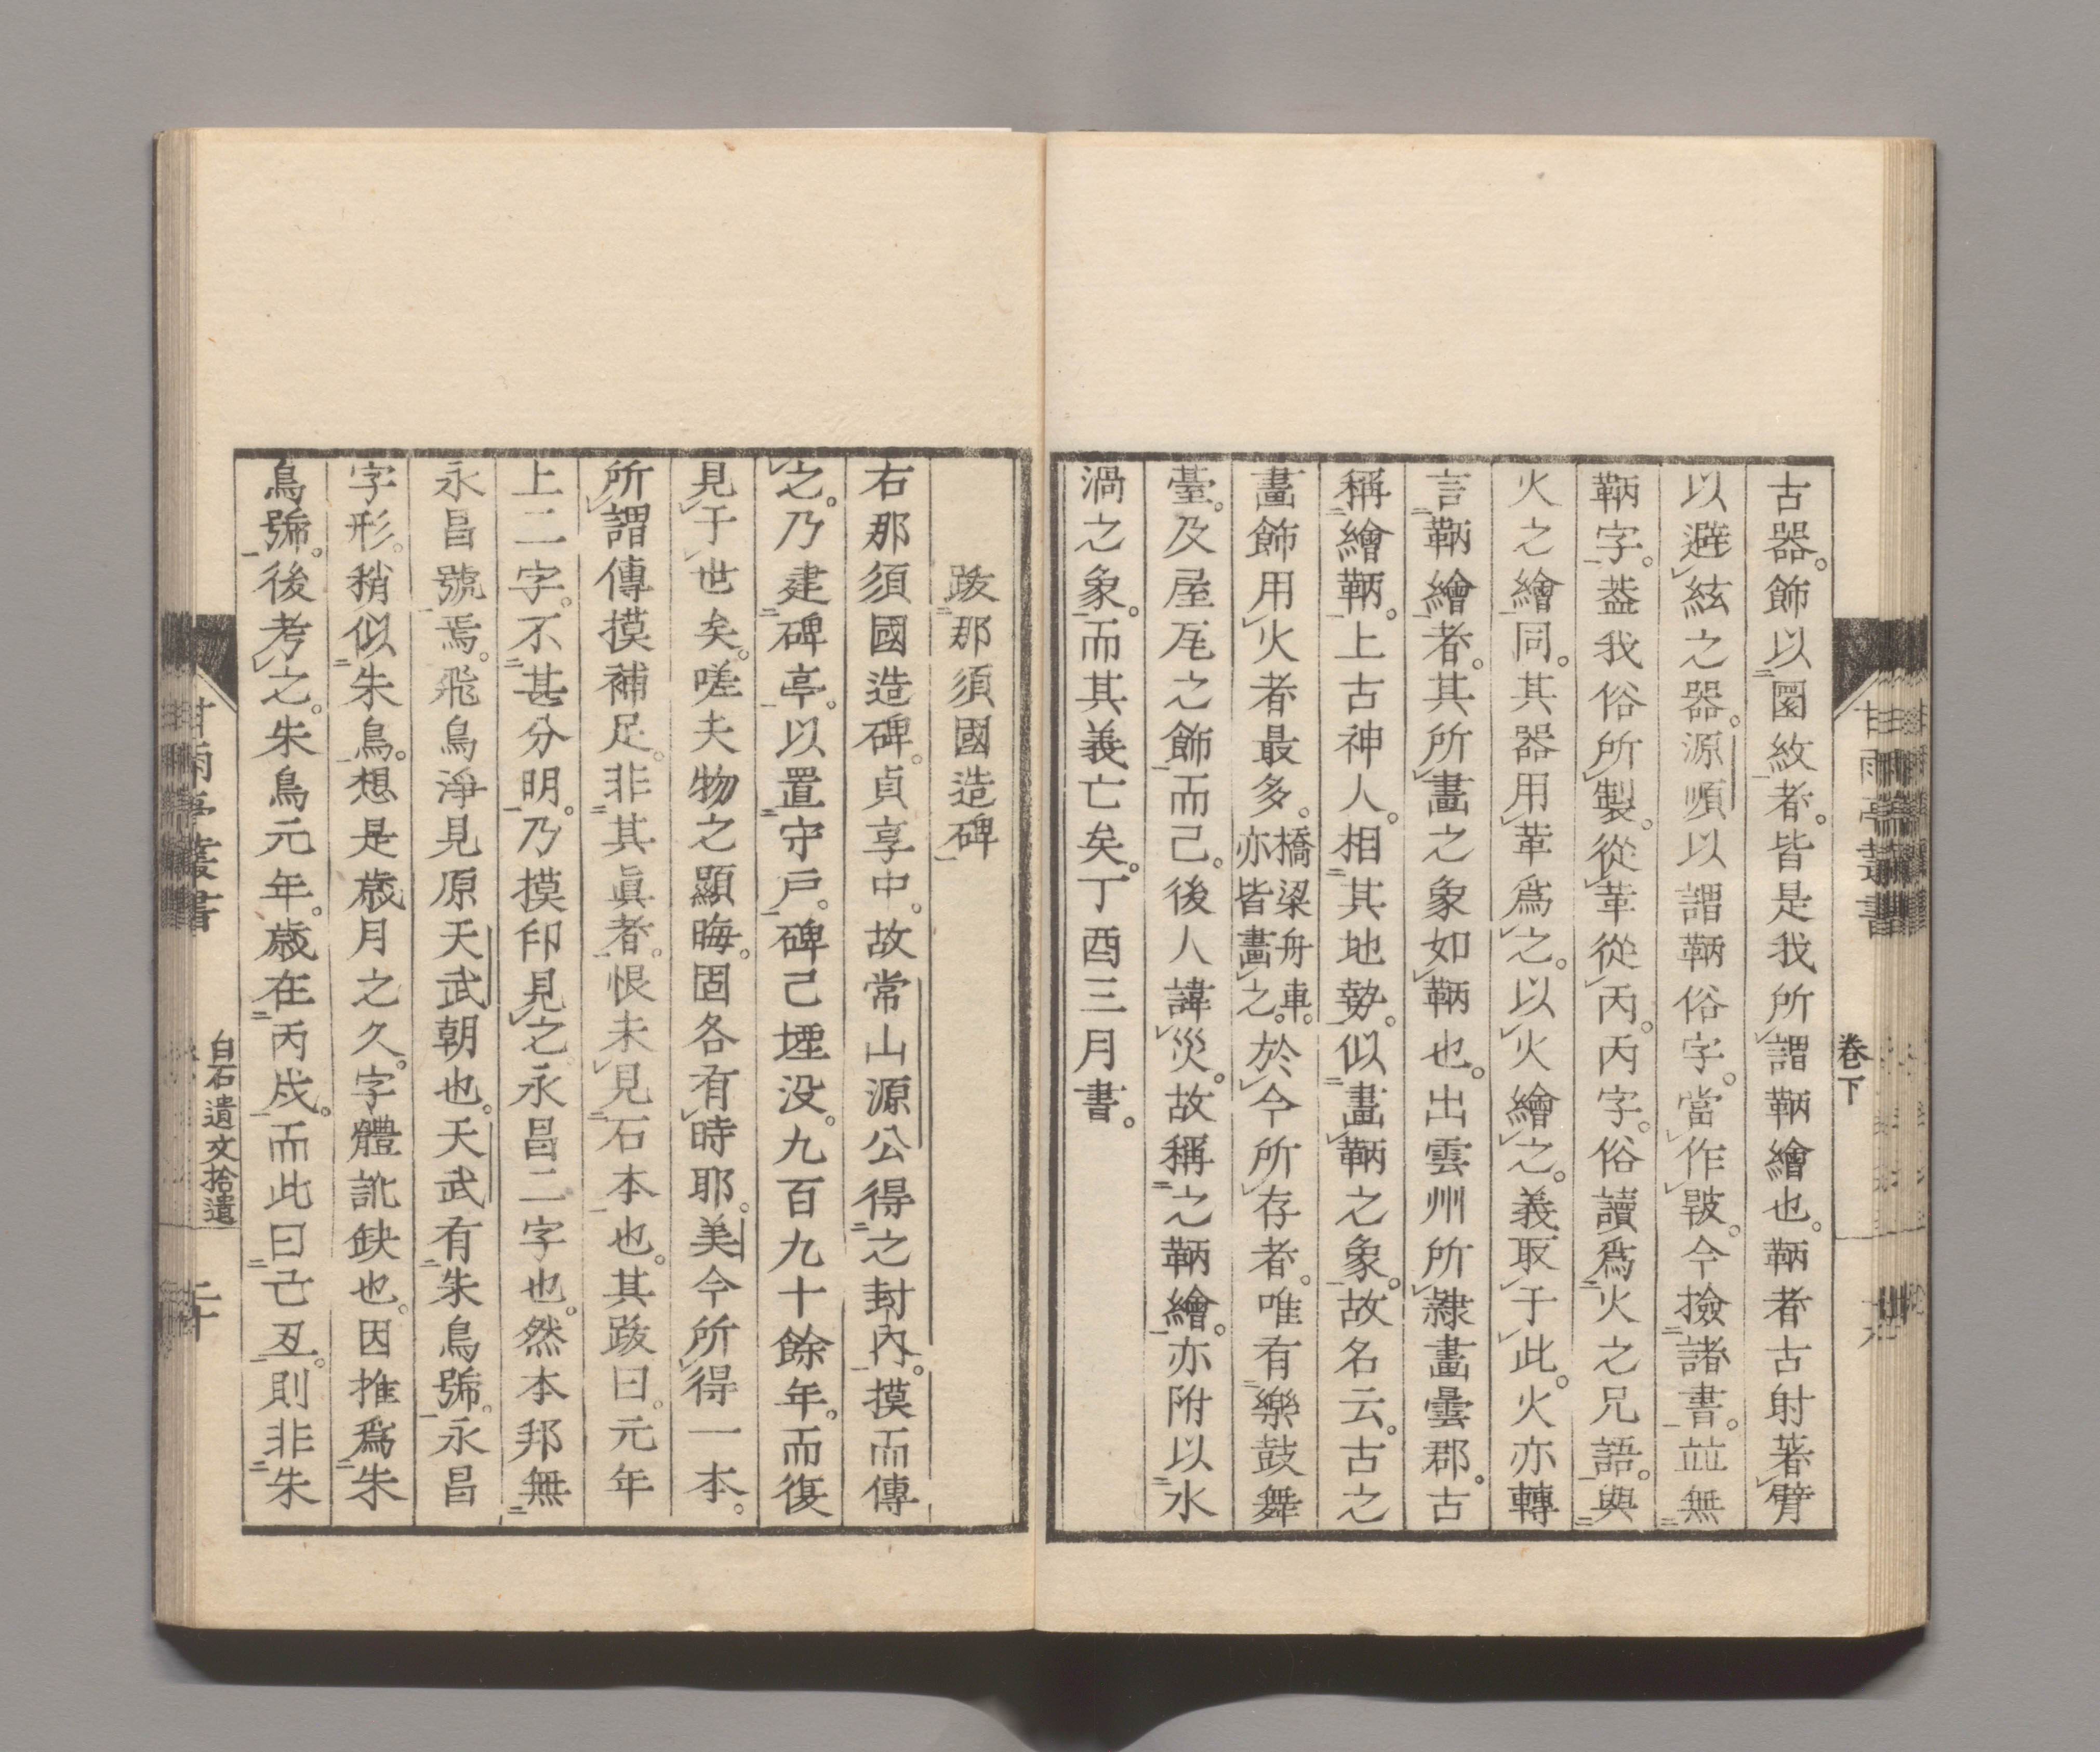 古器。飾以圜紋者。皆是我所謂鞆繪也。鞆者古射著臂
以避絃之器。源順以謂鞆俗字。當作𩊓。今撿諸書。並無
鞆字。葢我俗所製。從革從丙。丙字。俗讀爲火之兄語。與
火之繪同。其器用革爲之。以火繪之。義取于此。火亦轉
言鞆繪者。其所畫之象如鞆也。出雲州所隷畫曇郡。古
稱繪鞆。上古神人。相其地勢。似畫鞆之象。故名云。古之
畫飾用火者最多。橋梁舟車。亦皆畫之。於今所存者。唯有樂鼓舞
臺。及屋瓦之飾而己。後人諱災。故稱之鞆繪。亦附以水
渦之象。而其義亡矣。丁酉三月書。
卷下
跋那須國造碑
右那須國造碑。貞享中。故常山源公得之封內。摸而傳
之。乃建碑亭。以置守戸。碑己堙没。九百九十餘年。而復
見于世矣。嗟夫物之顯晦。固各有時耶。美今所得一本。
所謂傳摸補足。非其眞者。恨未見石本也。其跋曰。元年
上二字。不甚分明。乃摸印見之永昌二字也。然本邦無
永昌號焉。飛鳥淨見原天武朝也。天武有朱鳥號。永昌
字形。稍似朱鳥。想是歳月之久。字體訛缺也。因推爲朱
鳥號。後考之。朱鳥元年。歳在丙戍。而此曰亡亥。則非朱
甘雨亭叢書
白石遺文拾遺
二十